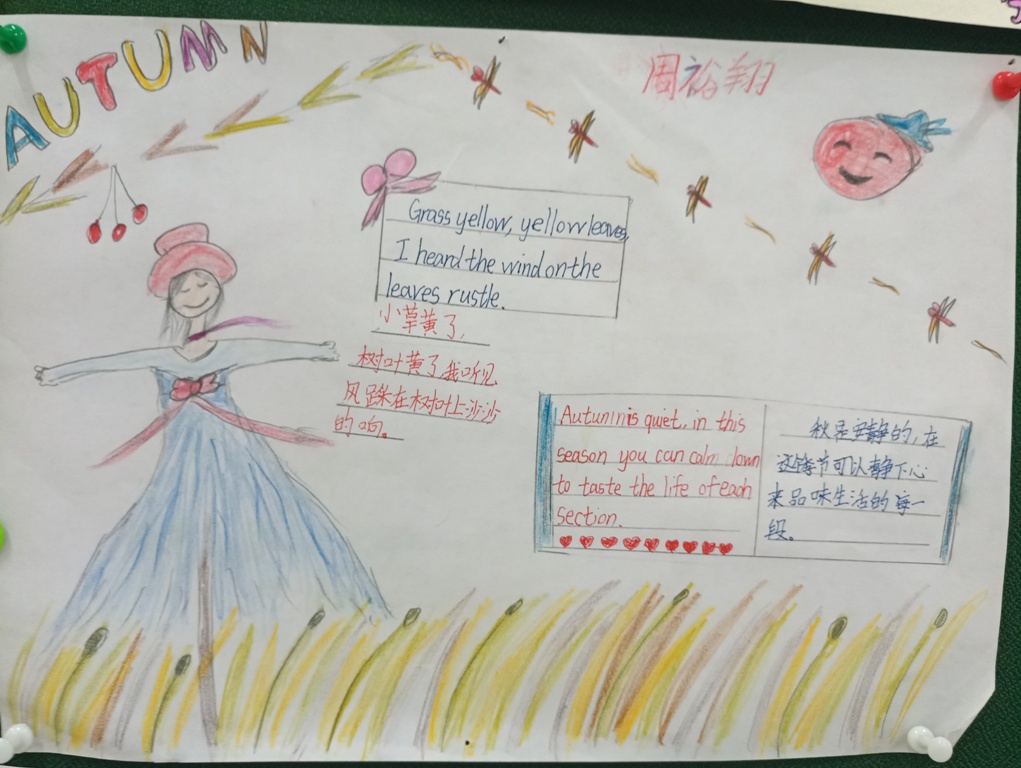 AUTUMN
周裕翔
Grass yellow, yellow leaves,
I heard the wind on the
leaves rustle.
小草黄了,
树叶黄了我听见
风跺在树叶上沙沙
的响。
Autumn is quiet, in this
season you can calm down
to taste the life of each
section.
秋是安静的,在
这季节可以静下心
来品味生活的每一
段。